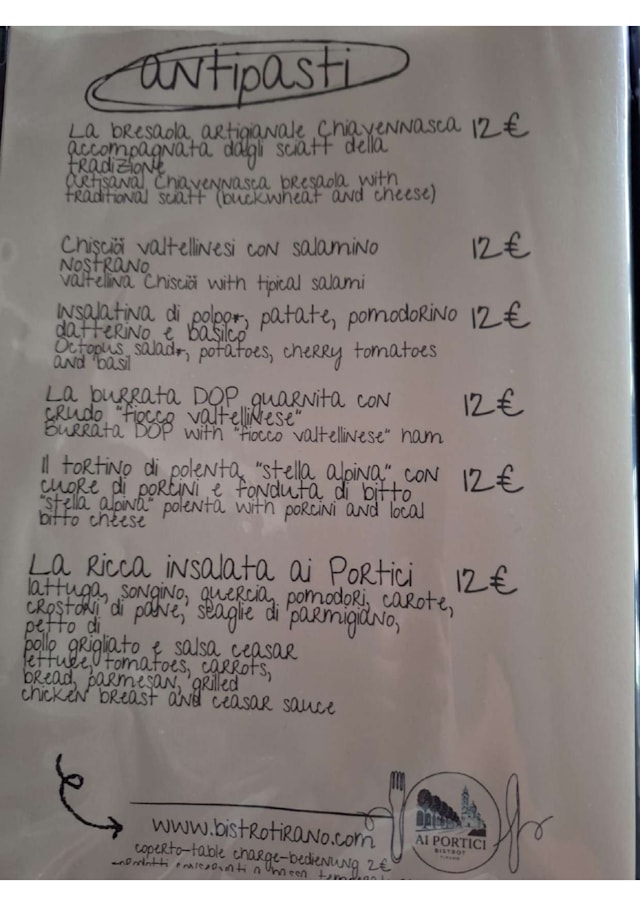 antipasti
La bresaola artigianale Chiavennasca 12 €
accompagnata dagli sciatt della
tradizione
artisanal Chiavennasca bresaola with
traditional sciatt (buckwheat and cheese)
Chisciöi valtellinesi con salamino 12 €
nostrano
valtellina Chisciöi with tipical salami
Insalatina di polpo*, patate, pomodorino 12 €
datterino e basilco
Octopus salad*, potatoes, cherry tomatoes
and basil
La burrata DOP guarnita con 12 €
crudo "fiocco valtellinese"
Burrata DOP with "fiocco valtellinese" ham
Il tortino di polenta "stella alpina" con 12 €
cuore di porcini e fonduta di bitto
"stella alpina" polenta with porcini and local
bitto cheese
La ricca insalata ai Portici 12 €
lattuga, songino, quercia, pomodori, carote,
crostoni di pane, scaglie di parmigiano,
petto di
pollo grigliato e salsa ceasar
lettuce, tomatoes, carrots,
bread, parmesan, grilled
chicken breast and ceasar sauce
www.bistrotirano.com
AI PORTICI
BISTROT
coperto-table charge-bedienung 2€